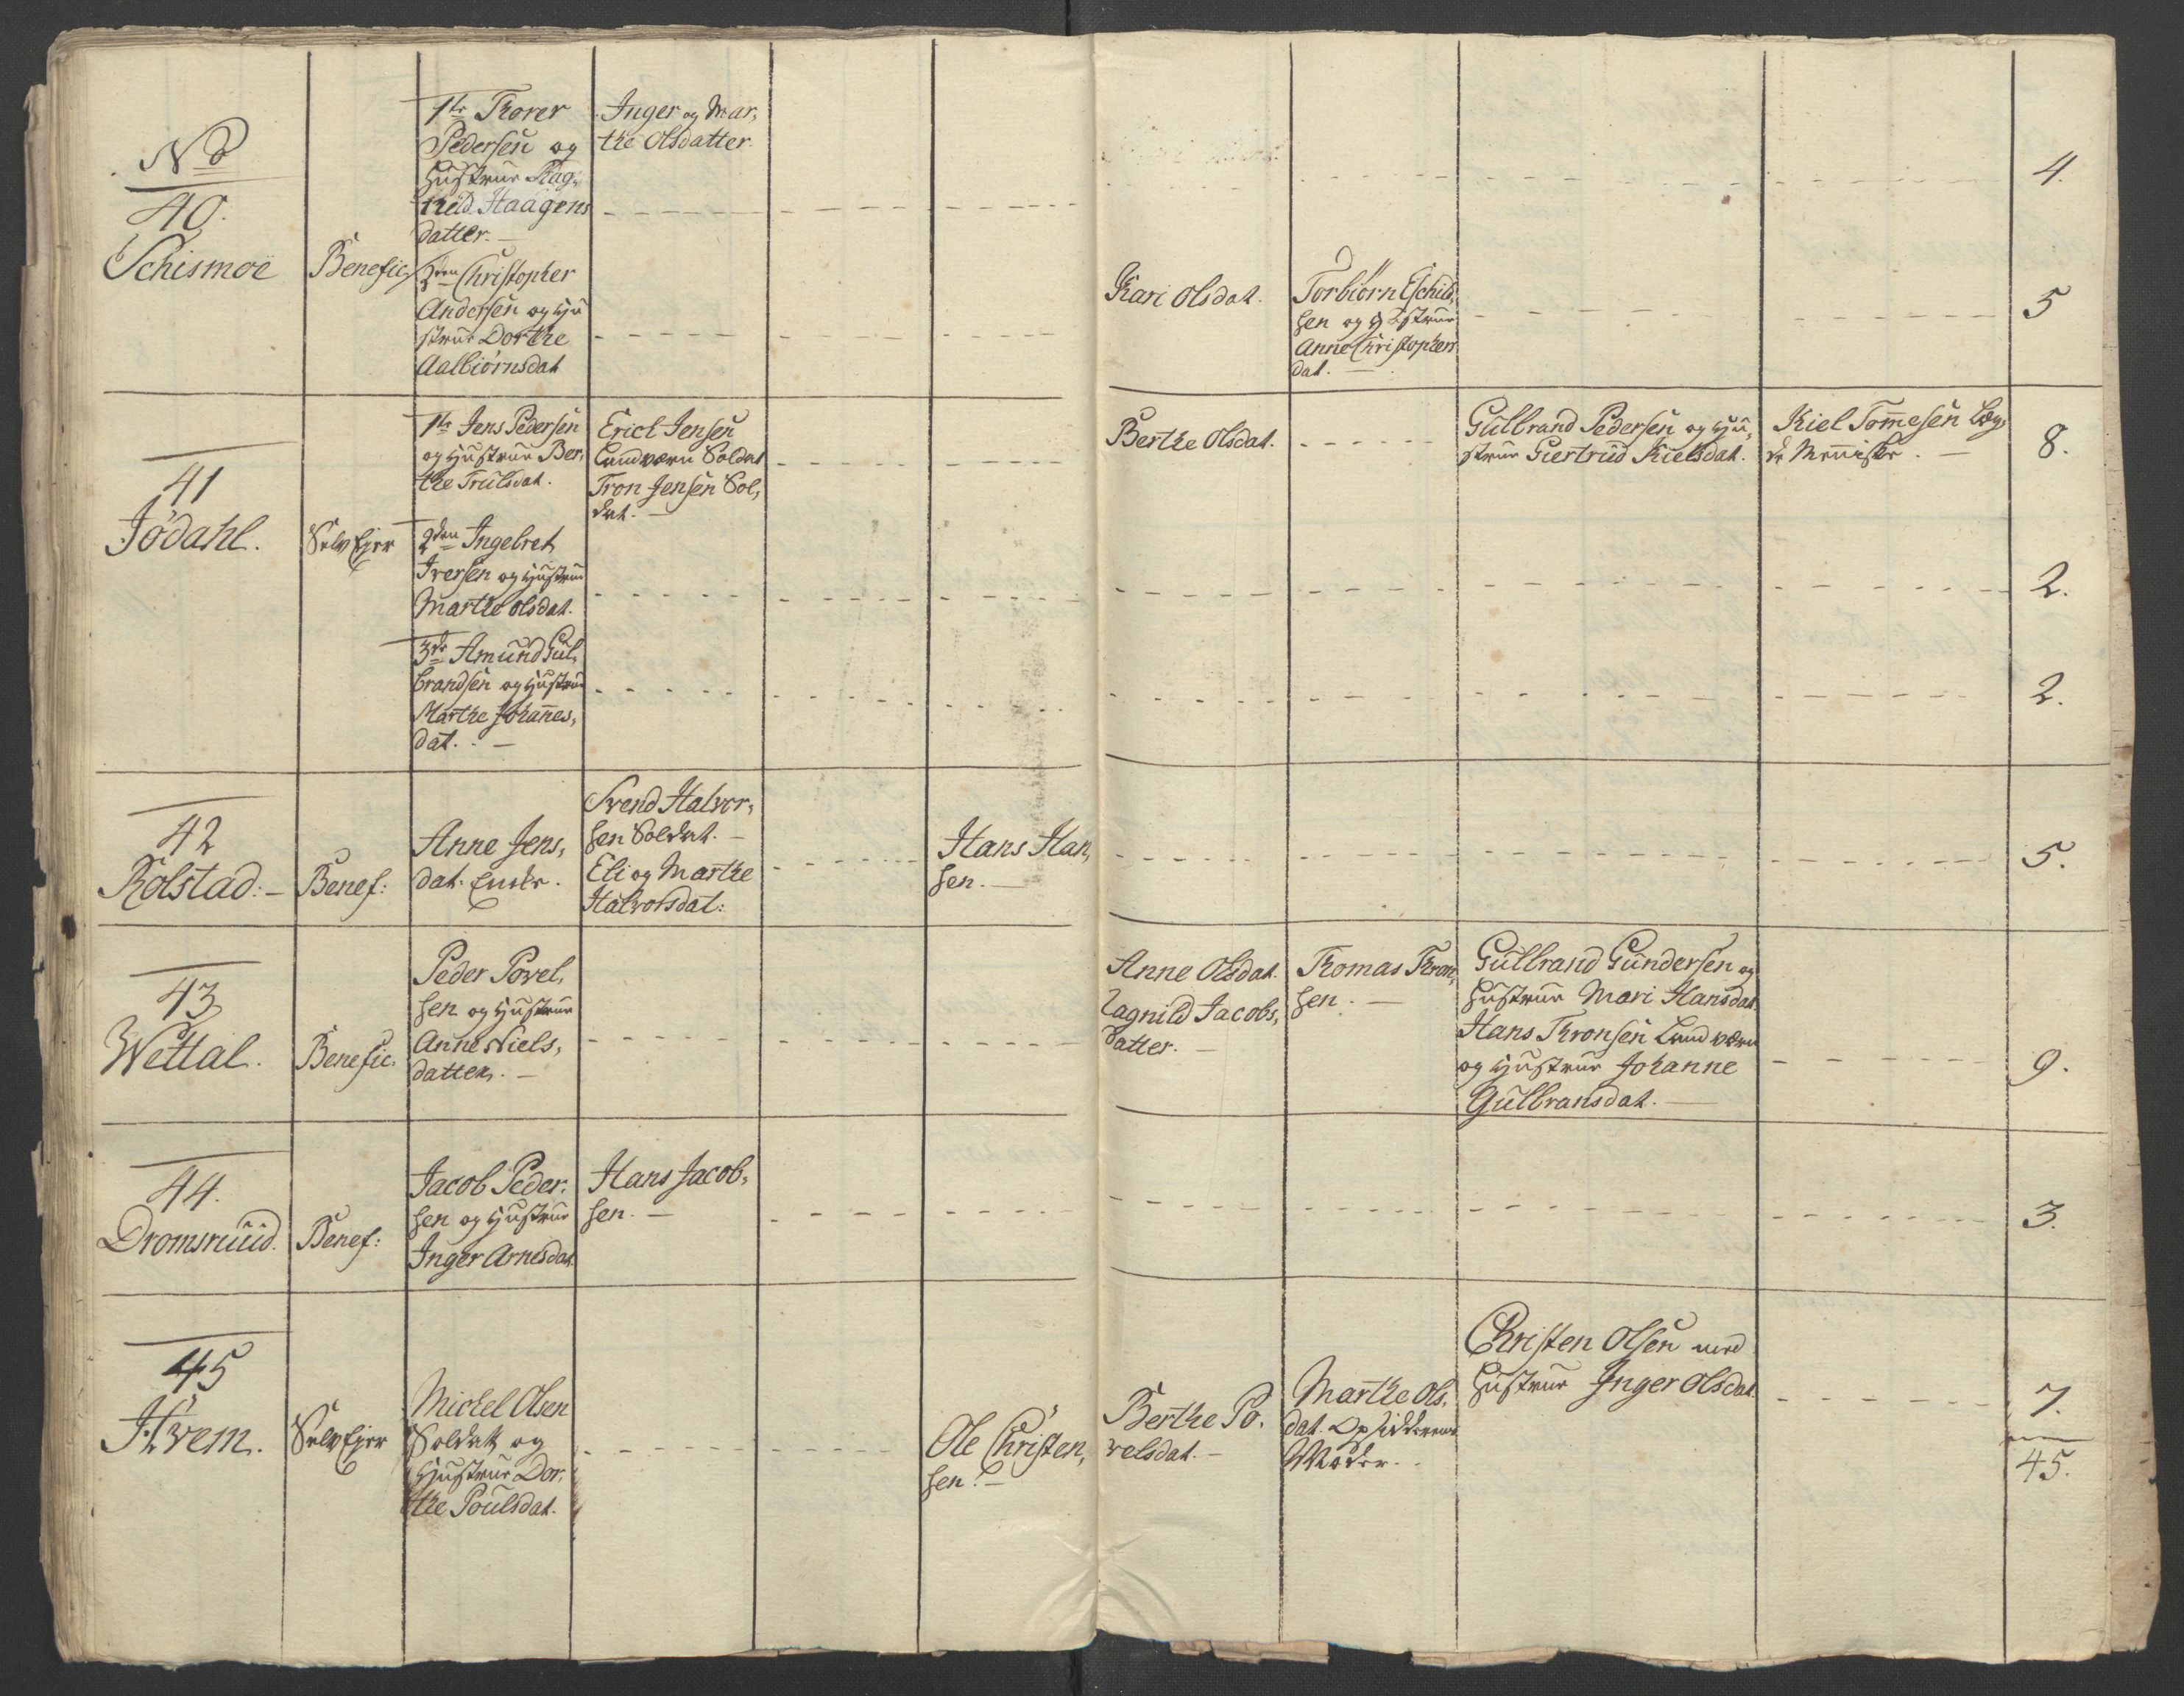 No
40.
Schismoe
Benefic,
1te Thorer
Pedersen og
Hustrue Rag,
Haagens
datter. —
2den Christopher
Andersen og Hu
strue Dorthe
Aalbiørnsdat
Inger og Mar,
the Olsdatter
Kari Olsdat.
Torbiørn Eschild,
sen og Hustrue
Anne Christophers
dat. —
4.
5
41
Jødahl.
Selv Ejer
1te Jens Pedersen
og Hustrue Ber,
the Trulsdat.
2den Ingebret
Iversen og Hustrue
Marthe Olsdat.
3die Amund Gul,
brandsen og Hustrue
Marthe Johannes,
dat. —
Erich Jensen
Landværn Soldat
Tron Jensen Sol,
dat. —
Berthe Olsdat.
Gulbrand Pedersen og Hu,
strue Giertrud Kielsdat.
Kiel Tommesen Læg,
de Menniske. —
8.
2.
2.
42
Rolstad: —
Benef:
Anne Jens,
dat. Enke.
Svend Halvor,
sen Soldat. —
Eli og Marthe
Halvorsdat:
Hans Han,
sen. —
5.
43
Wettal.
Benefic:
Peder Povel,
sen og Hustrue
Anne Niels,
datter. —
Anne Olsdat.
Ragnild Jacobs,
datter. —
Thomas Thron,
sen. —
Gulbrand Gundersen og
Hustrue Mari Hansdat.
Hans Thronsen Landværn
og Hustrue Johanne
Gulbransdat. —
9.
44.
Dromsruud.
Benef:
Jacob Peder,
sen og Hustrue
Inger Arnesdat.
Hans Jacob,
sen. —
3.
45
Hvem.
Selv Ejer
Michel Olsen
Soldat og
Hustrue Dor,
the Poulsdat.
Ole Christen,
sen. —
Berthe Po,
velsdat. —
Marthe Ols,
dat. Opsidderens
Moder.
Christen Olsen med
Hustrue Inger Olsdat.
7.
45.